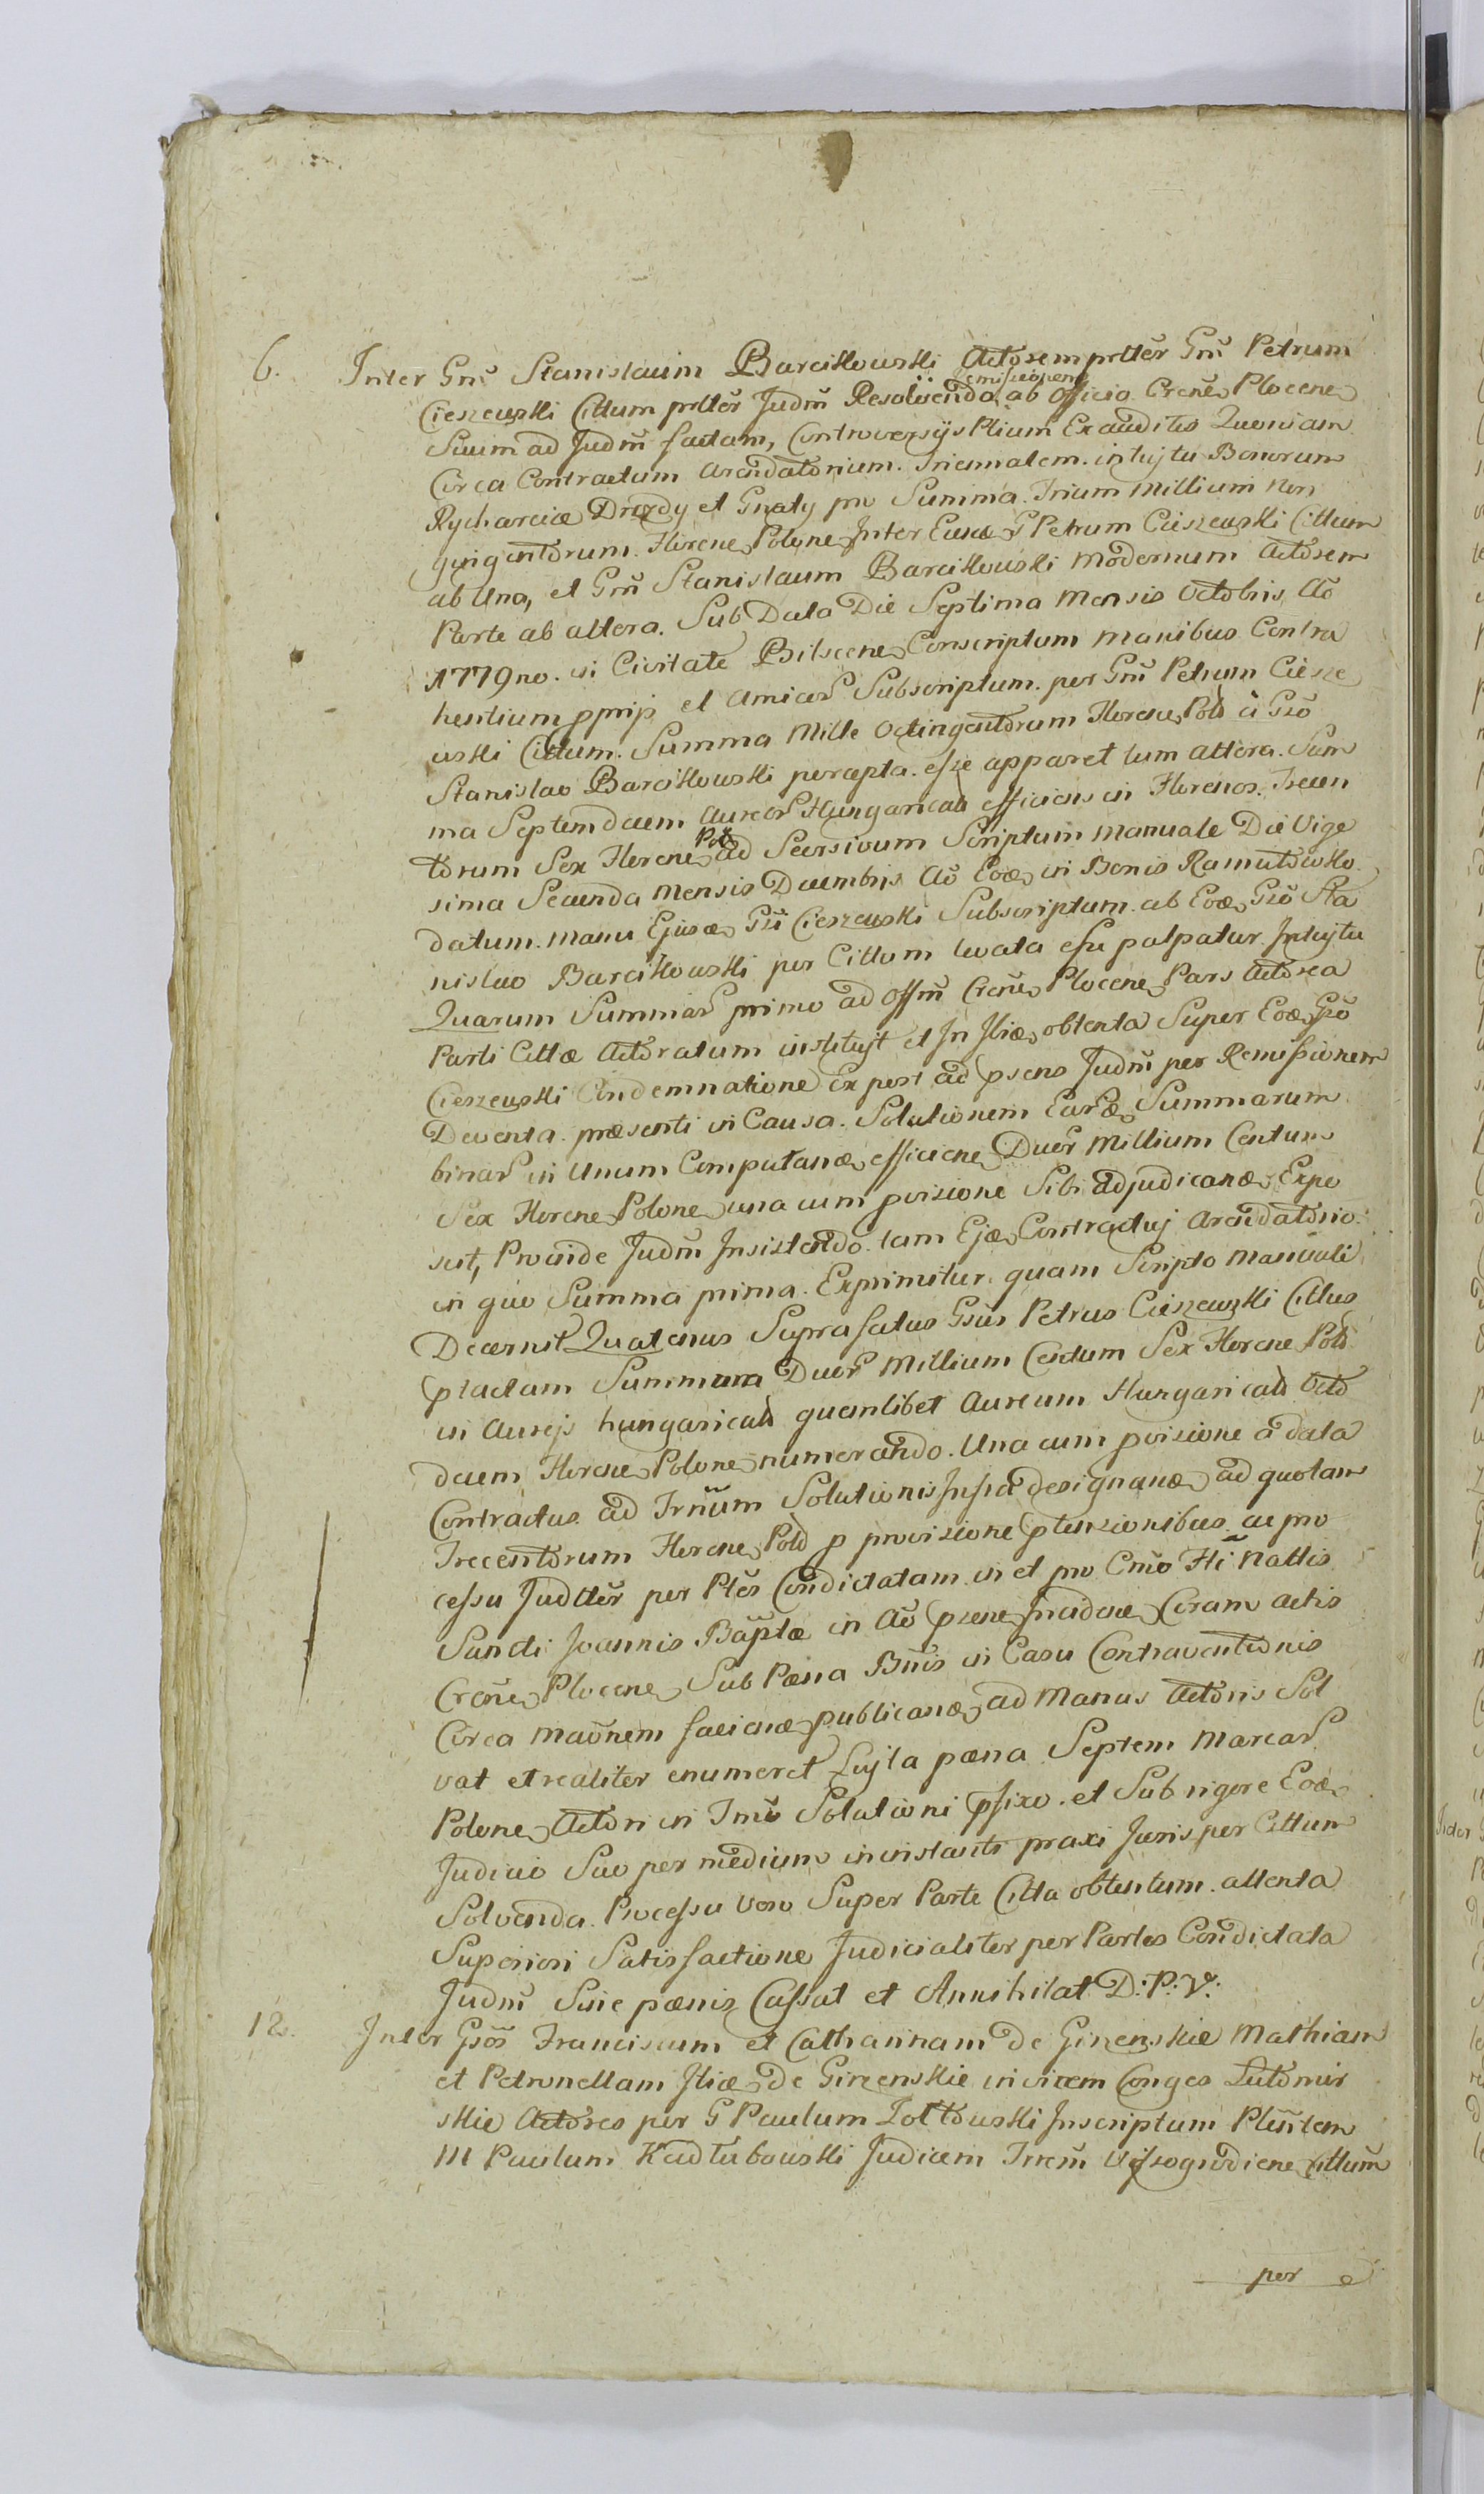 6. Inter Gnm̃ Stanislaum Barcikowski Actorem prltẽr Gnm̃ Petrum
Cieszewski Cittum prltẽr Judm̃ Resolvendo remissionem ab Officio Crẽne Plocene
Suum ad Judm̃ factam, Controversijs Ptium Exauditis Quoniam
Circa Contractum arendatorium Triennalem intujtu Bonorum
Rycharcice Drozdy et Gnaty pro Summa Trium Millium Non
gingentorum Florene Polone Inter Eundem G Petrum Cieszewski Cittum
ab Una, et Gnm̃ Stanislaum Barcikowski Modernum Actorem
Parte ab altera. Sub Data Die Septima Mensis Octobris Aõ
1779no. in Civitate Bilscene Conscriptum manibus Contra
hentium pprijs et Amicor Subscriptum per Gnm̃ Petrum Ciesze
wski Cittum. Summa Mille Octingentorum Florene Pold à Gsõ
Stanislao Barcikowski percepta esse apparet tum altera Sum
ma Septemdecem Aureor Hungaricald efficiens in Florenos Trecen
torum Sex Florene Pold ad Seorsivum Scriptum Manuale Die Vige
sima Secunda Mensis Decembris Aõ Eod in Bonis Ramutowko
datum. Manu Ejusd Gsi Cieszewski Subscriptum ab Eod Gsõ Sta
nislao Barcikowski per Cittum levata esse palpatur Intujtu
Quarum Summar primo ad Offm̃ Crẽne Plocene Pars Actorea
Parti Cittæ Actoratum institujt et In Ibid obtenta Super Eod Gsõ
Cieszewski Condemnatione Ex post ad psens Judm̃ per Remissionem
Deventa præsenti in Causa. Solutionem Eard Summarum
binar in Unum Computand efficiene Duor Millium Centum
Sex Florene Polone una cum provisione Sibi adjudicand Expo
scit, Proinde Judm̃ Insistendo tam Ejd Contractuj Arendatorio
in quo Summa prima Exprimitur quam Scripto Manuali
Decernit Quatenus Suprafatus Gsus Petrus Cieszewski Cittus
ptactam Summam Duor Millium Centum Sex Florene Pold
in Aurejs hungaricald quemlibet Aureum Hungaricald Octo
decem Florene Polone numerando. Una cum provisione a data
Contractus ad Trñum Solutionis Infra designand ad quotam
Trecentorum Florene Pold p provisione ptensionibus ac pro
cessu Judltẽr per Ptes Condictatam in et pro Cmõ Fti Nattis
Sancti Joannis Bãptæ in Aõ psene Incidene Coram Actis
Crẽne Plocene Sub Pæna Bñis in Casu Contraventionis
Circa Maõnem faciend publicand ad Manus Actoris Sol
vat et realiter enumeret Lujta pæna Septem Marcar
Polone Actori in Tmõ Solutioni pfixo et Sub rigore Eod
Judicio Suo per medium in instanti praxi Juris per Cittum
Solvenda. Processu vero Super Parte Citta obtentum attenta
Superiori Satisfactione Judicialiter per Partes Condictata
Judm̃ Sine pænis Cassat et Annihilat D: P: V:
12. Inter Gsõs Franciscum et Catharinam de Girzenskie Mathiam
et Petronellam Ibid de Girzenskie invicem Conges Lutomir
skie Actores per G Paulum Zoltowski Inscriptum Plen̄tem
M Paulum Kadlubowski Judicem Trrem̃ Wyssogrodiene Cittum
per